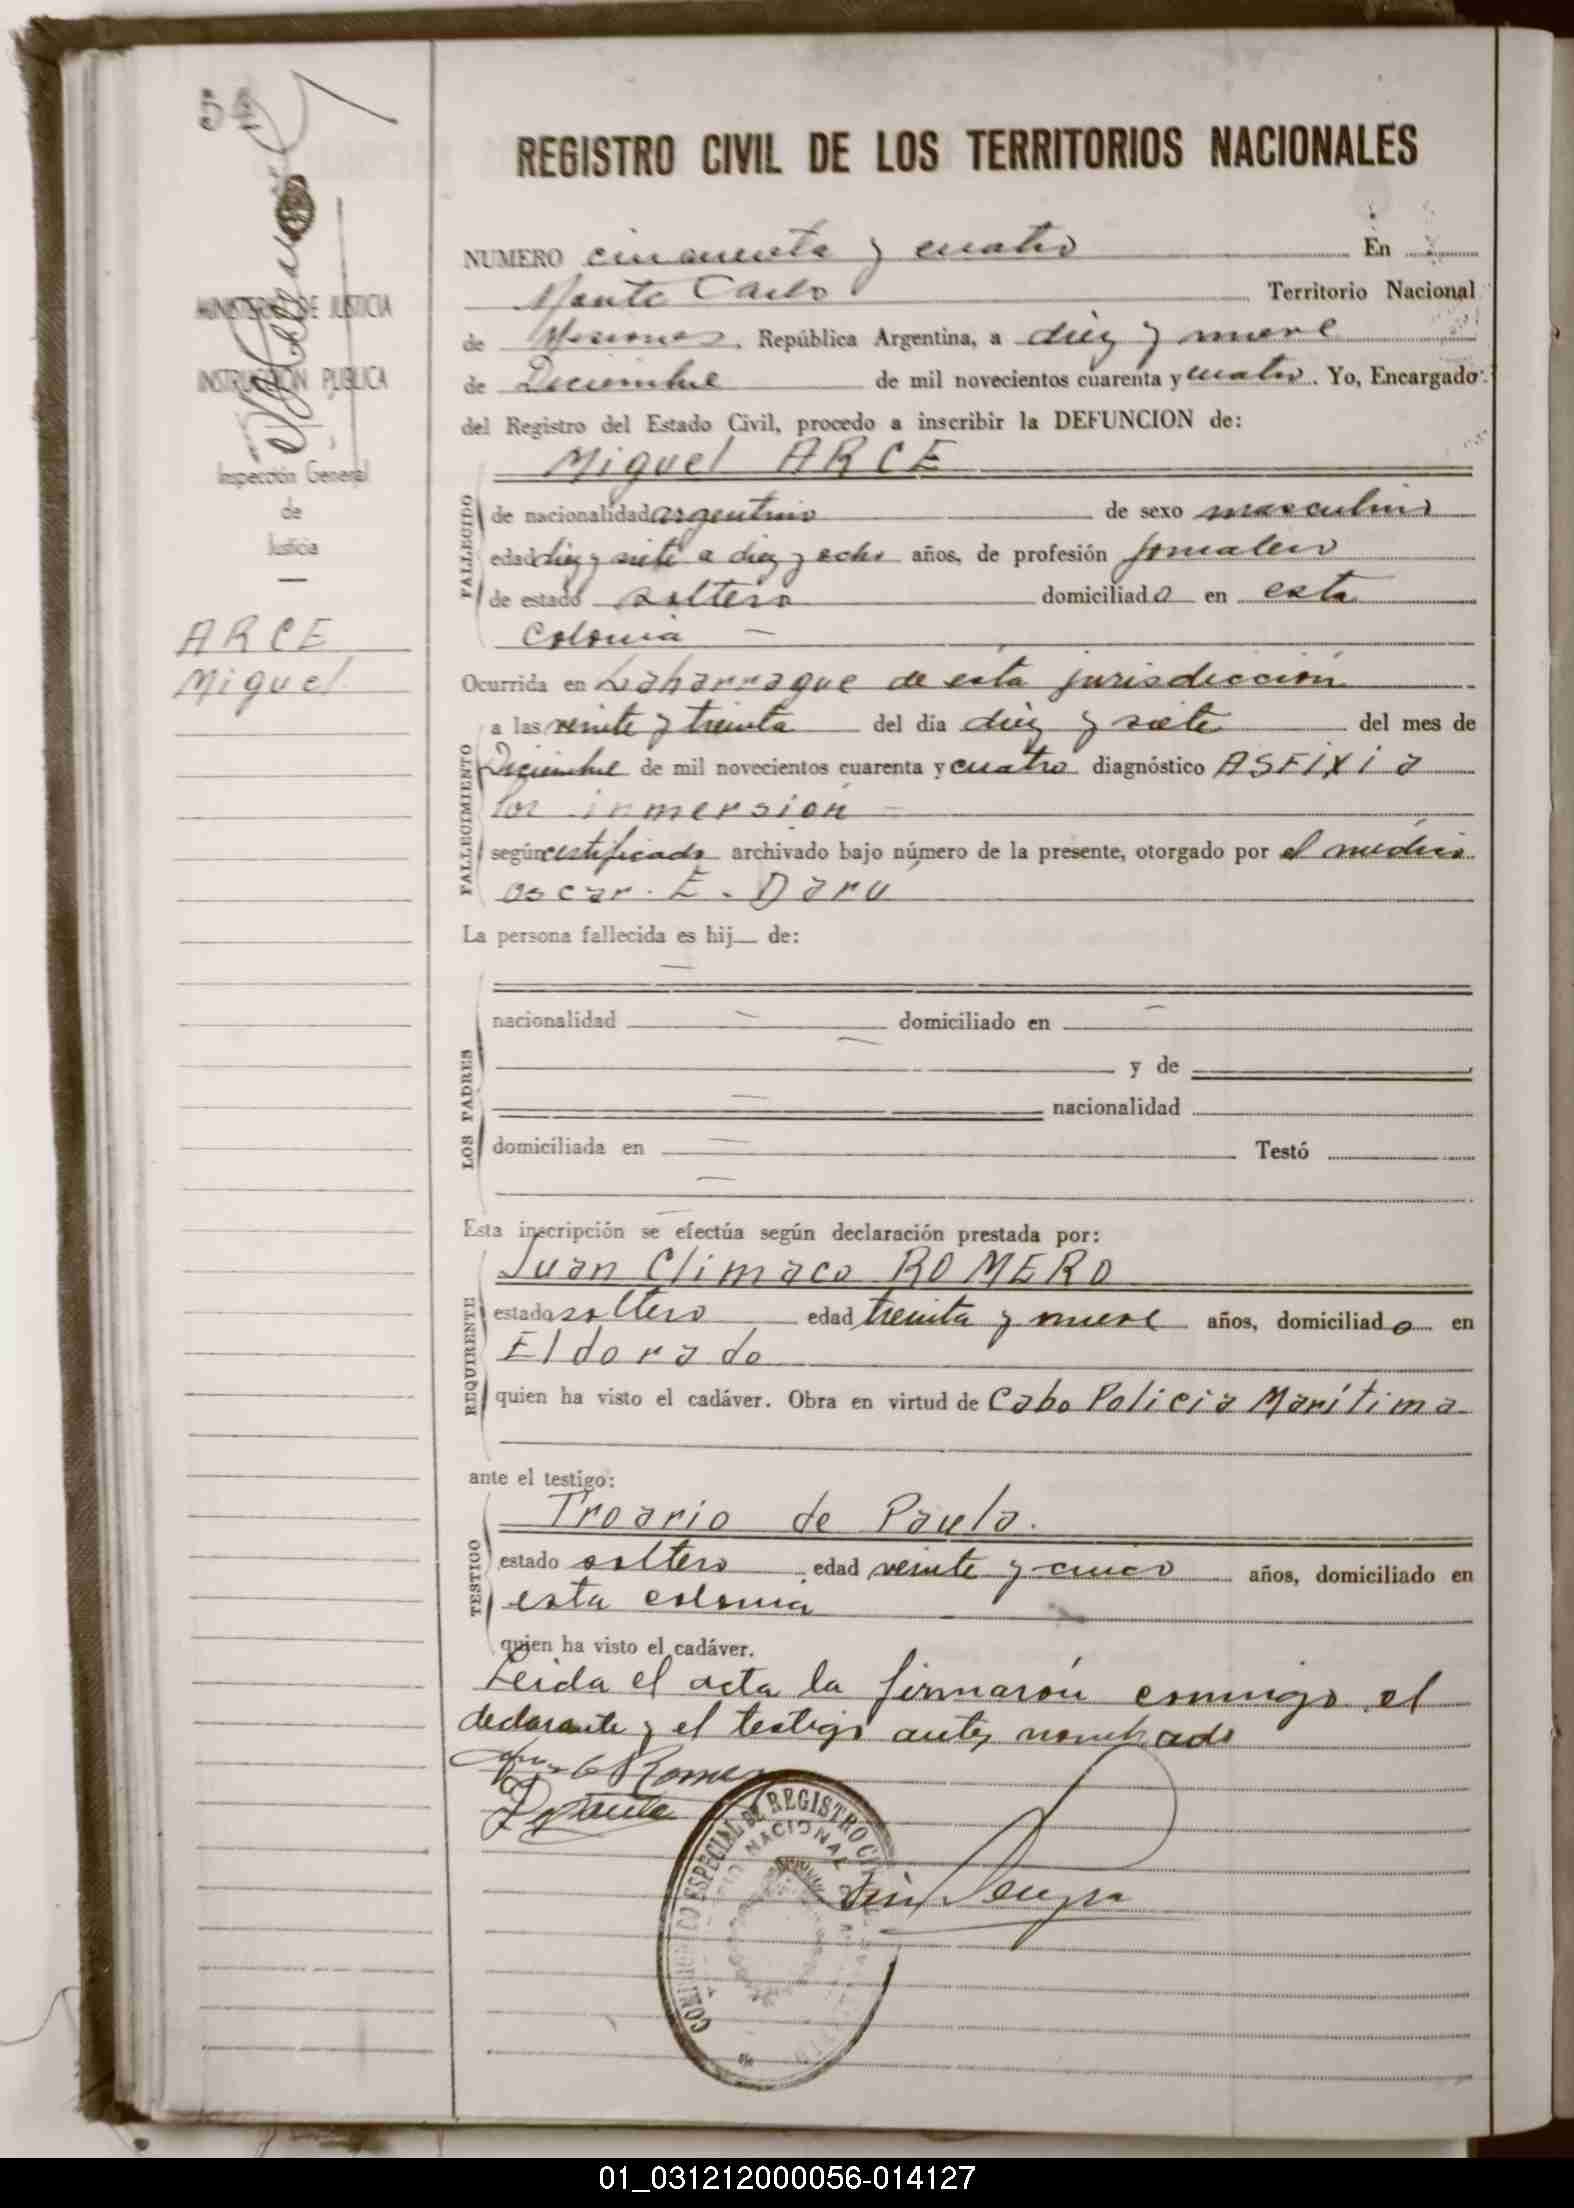 MINISTERIO DE JUSTICIA
INSTRUCCIÓN PUBLICA
Inspección General
de
Justicia
ARCE
Miguel
REGISTRO CIVIL DE LOS TERRITORIOS NACIONALES
NUMERO cincuenta y cuatro En
Monte Carlo Territorio Nacional
de Misiones, República Argentina, a diez y nueve
de Diciembre de mil novecientos cuarenta y cuatro. Yo, Encargado
del Registro del Estado Civil, procedo a inscribir la DEFUNCION de:
Miguel ARCE
FALLECIDO
de nacionalidad argentino de sexo masculino
edad diez y siete a diez y ocho años, de profesión jornalero
de estado soltero domiciliado en esta
colonia —
Ocurrida en Laharrague de esta jurisdicción
FALLECIMIENTO
a las veinte y treinta del día diez y siete del mes de
Diciembre de mil novecientos cuarenta y cuatro diagnóstico ASFIXIA
Por inmersión —
según certificado archivado bajo número de la presente, otorgado por el médico
Oscar. E. Darú
La persona fallecida es hij— de:
LOS PADRES
nacionalidad — domiciliado en —
y de
nacionalidad
domiciliada en — Testó
Esta inscripción se efectúa según declaración prestada por:
Juan Climaco ROMERO
REQUIRENTE
estado soltero edad treinta y nueve años, domiciliado en
Eldorado
quien ha visto el cadáver. Obra en virtud de Cabo Policia Marítima
ante el testigo:
Troario de Paula.
TESTIGO
estado soltero edad veinte y cinco años, domiciliado en
esta colonia
quien ha visto el cadáver.
Leida el acta la firmarón conmigo el
declarante y el testigo antes nombrado
ESPECIAL DE REGISTRO
NACIONAL
01_031212000056-014127